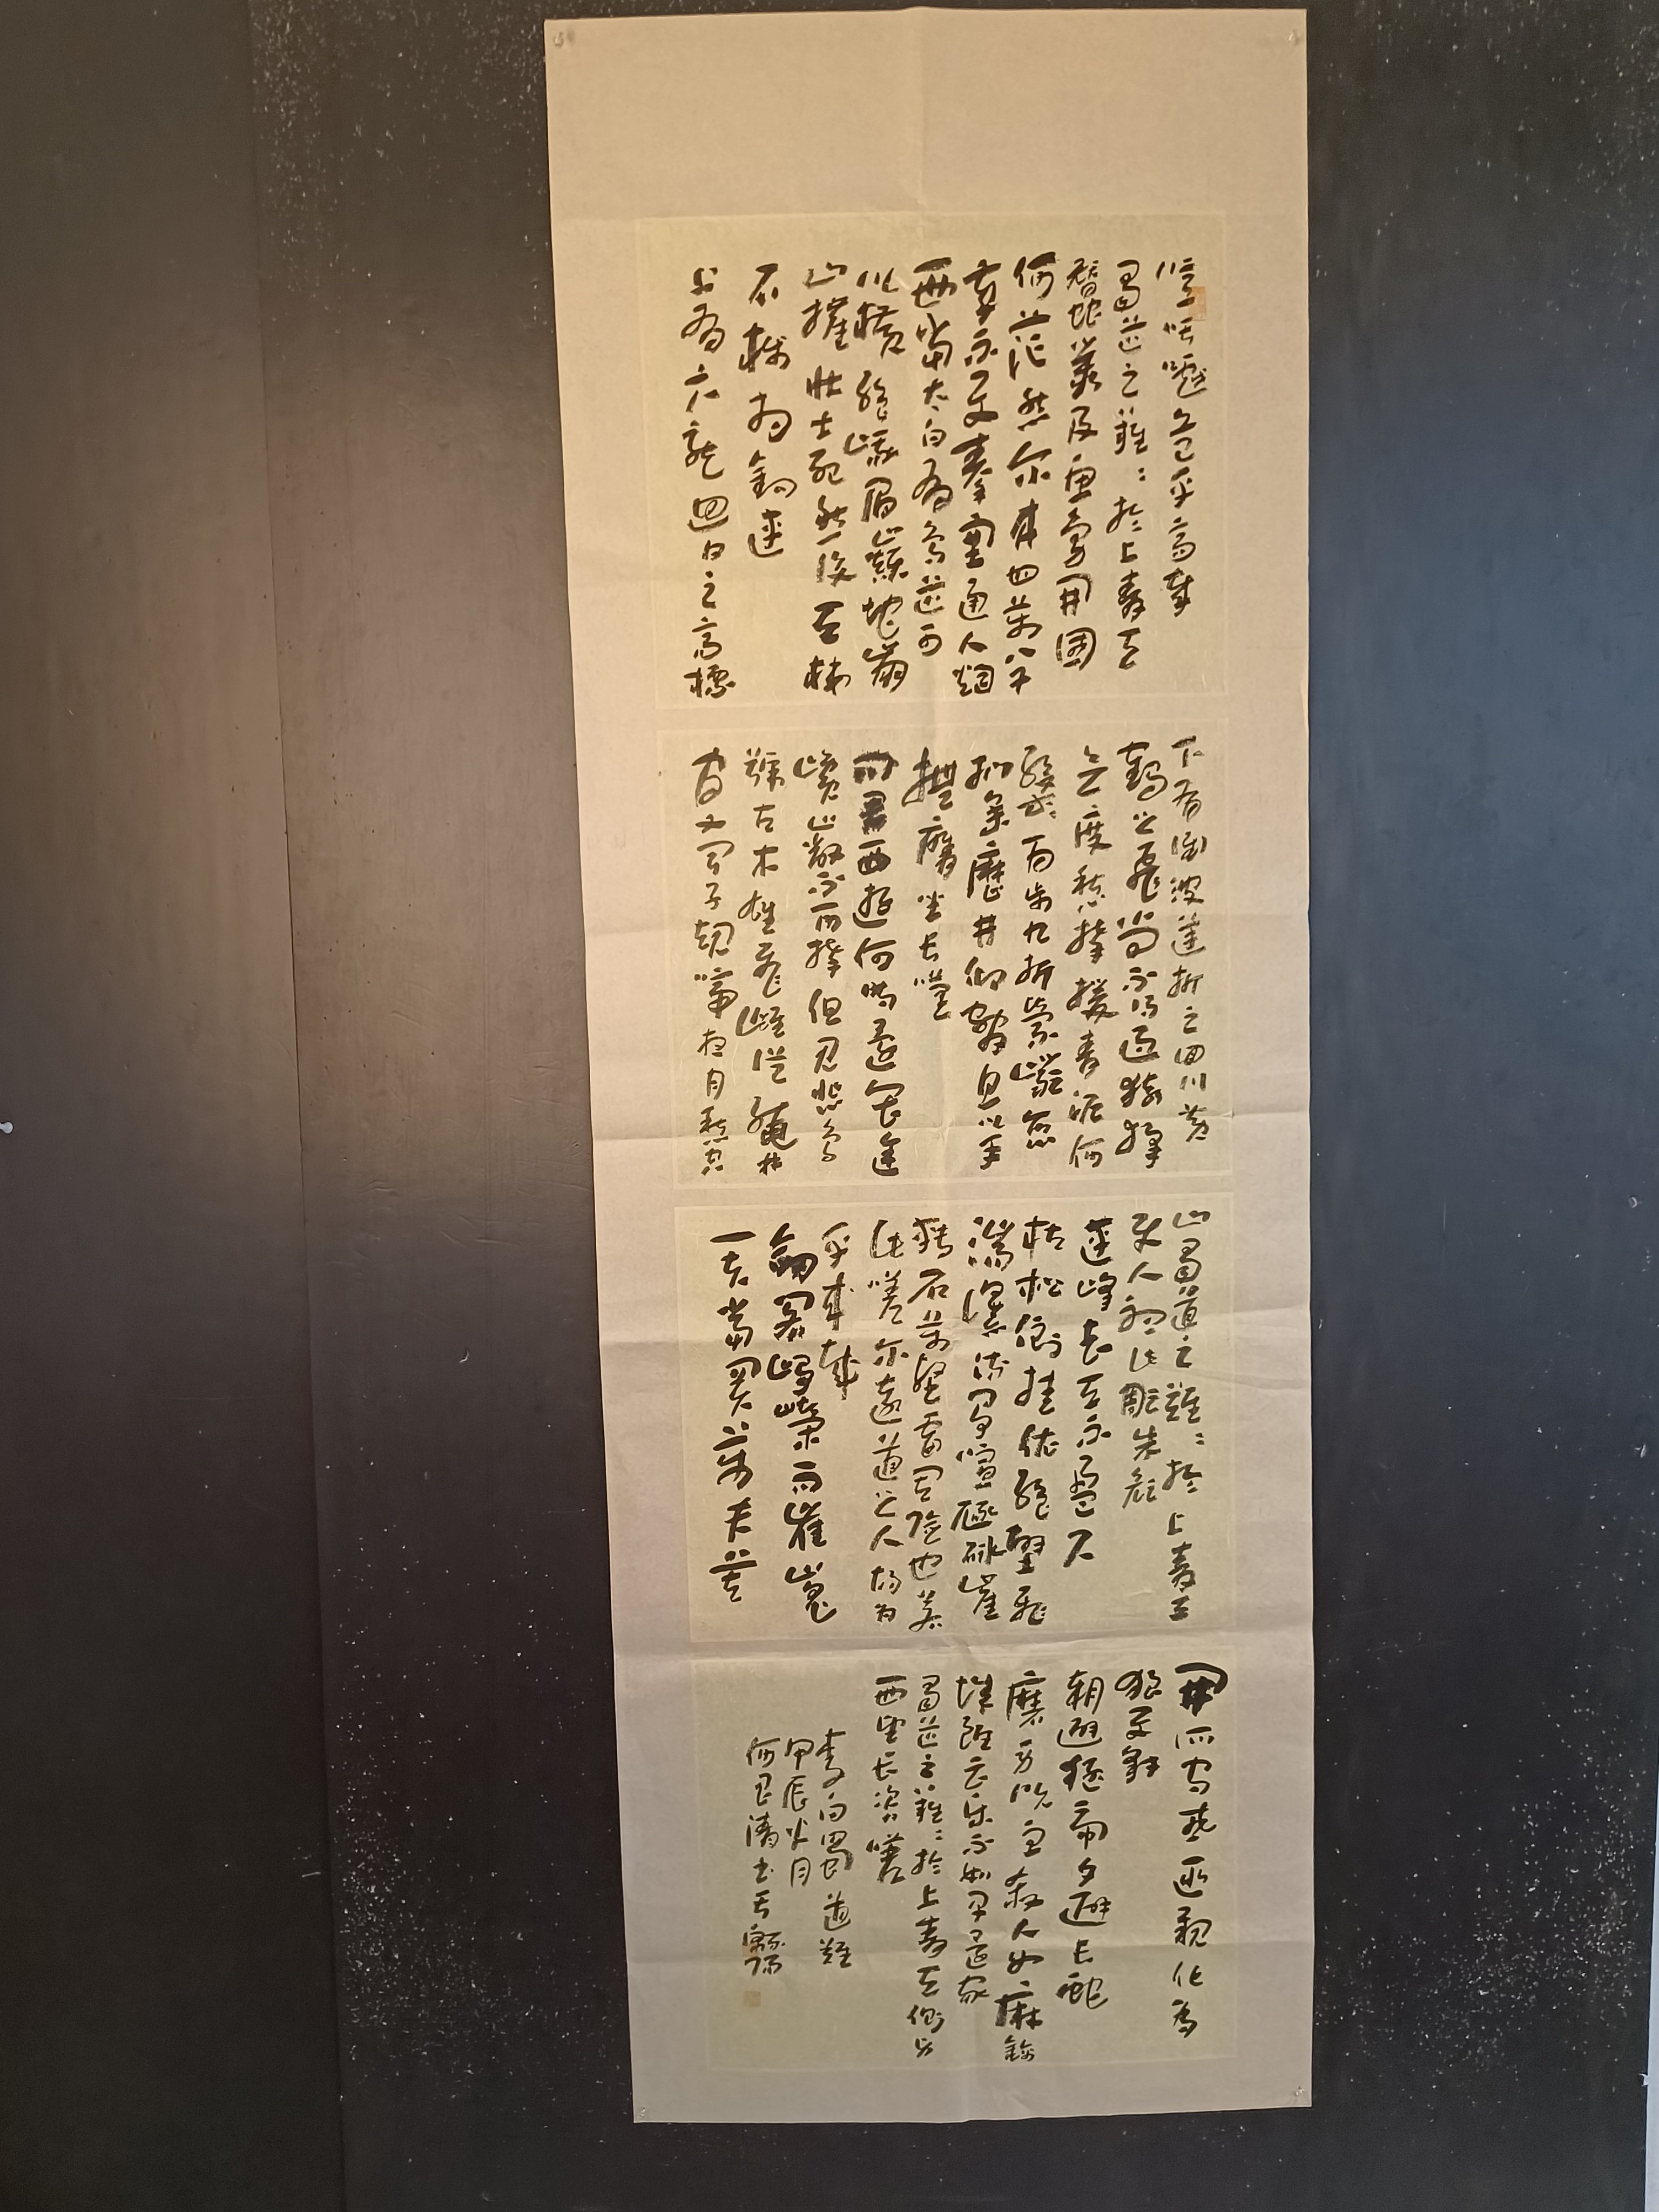 噫吁嚱危乎高哉
蜀道之難〻於上青天
蠶叢及魚鳧開國
何茫然尔来四萬八千
歲不與秦塞通人烟
西當太白有鳥道可
以橫絕峨眉巔地崩
山摧壯士死然後天梯
石棧相鉤連
上有六龍迴日之高標
下有衝波逆折之回川黃
鶴之飛尚不得過猿猱
欲度愁攀援青泥何
盤〻百步九折縈巖巒
捫參歷井仰脅息以手
撫膺坐長嘆
問君西遊何時還畏途
巉巖不可攀但見悲鳥
號古木雄飛雌從繞林
間又聞子規啼夜月愁空
山蜀道之難〻於上青天
使人聽此凋朱顏
連峰去天不盈尺
枯松倒挂依絕壁飛
湍瀑流爭喧豗砯崖
轉石萬壑雷其險也若
此嗟尔遠道之人胡為
乎來哉
劍閣崢嶸而崔嵬
一夫當關萬夫莫
開所守或匪親化為
狼與豺
朝避猛虎夕避長蛇
磨牙吮血殺人如麻錦
城雖云樂不如早還家
蜀道之難〻於上青天側身
西望長咨嗟
李白蜀道難
甲辰火月
何濤書于